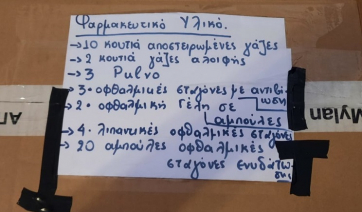 Φαρμακευτικό Υλικό.
→ 10 κουτιά αποστειρωμένες γάζες
→ 2 κουτιά γάζες αλοιφής
→ 3 Pulvo
→ 3· οφθαλμικές σταγόνες με αντιβίωση
→ 2· οφθαλμική Γέλη σε αμπούλες
→ 4· λιπαντικές οφθαλμικές σταγόνες
→ 20 αμπούλες οφθαλμικές
σταγόνες ενυδάτωσης
Mylan